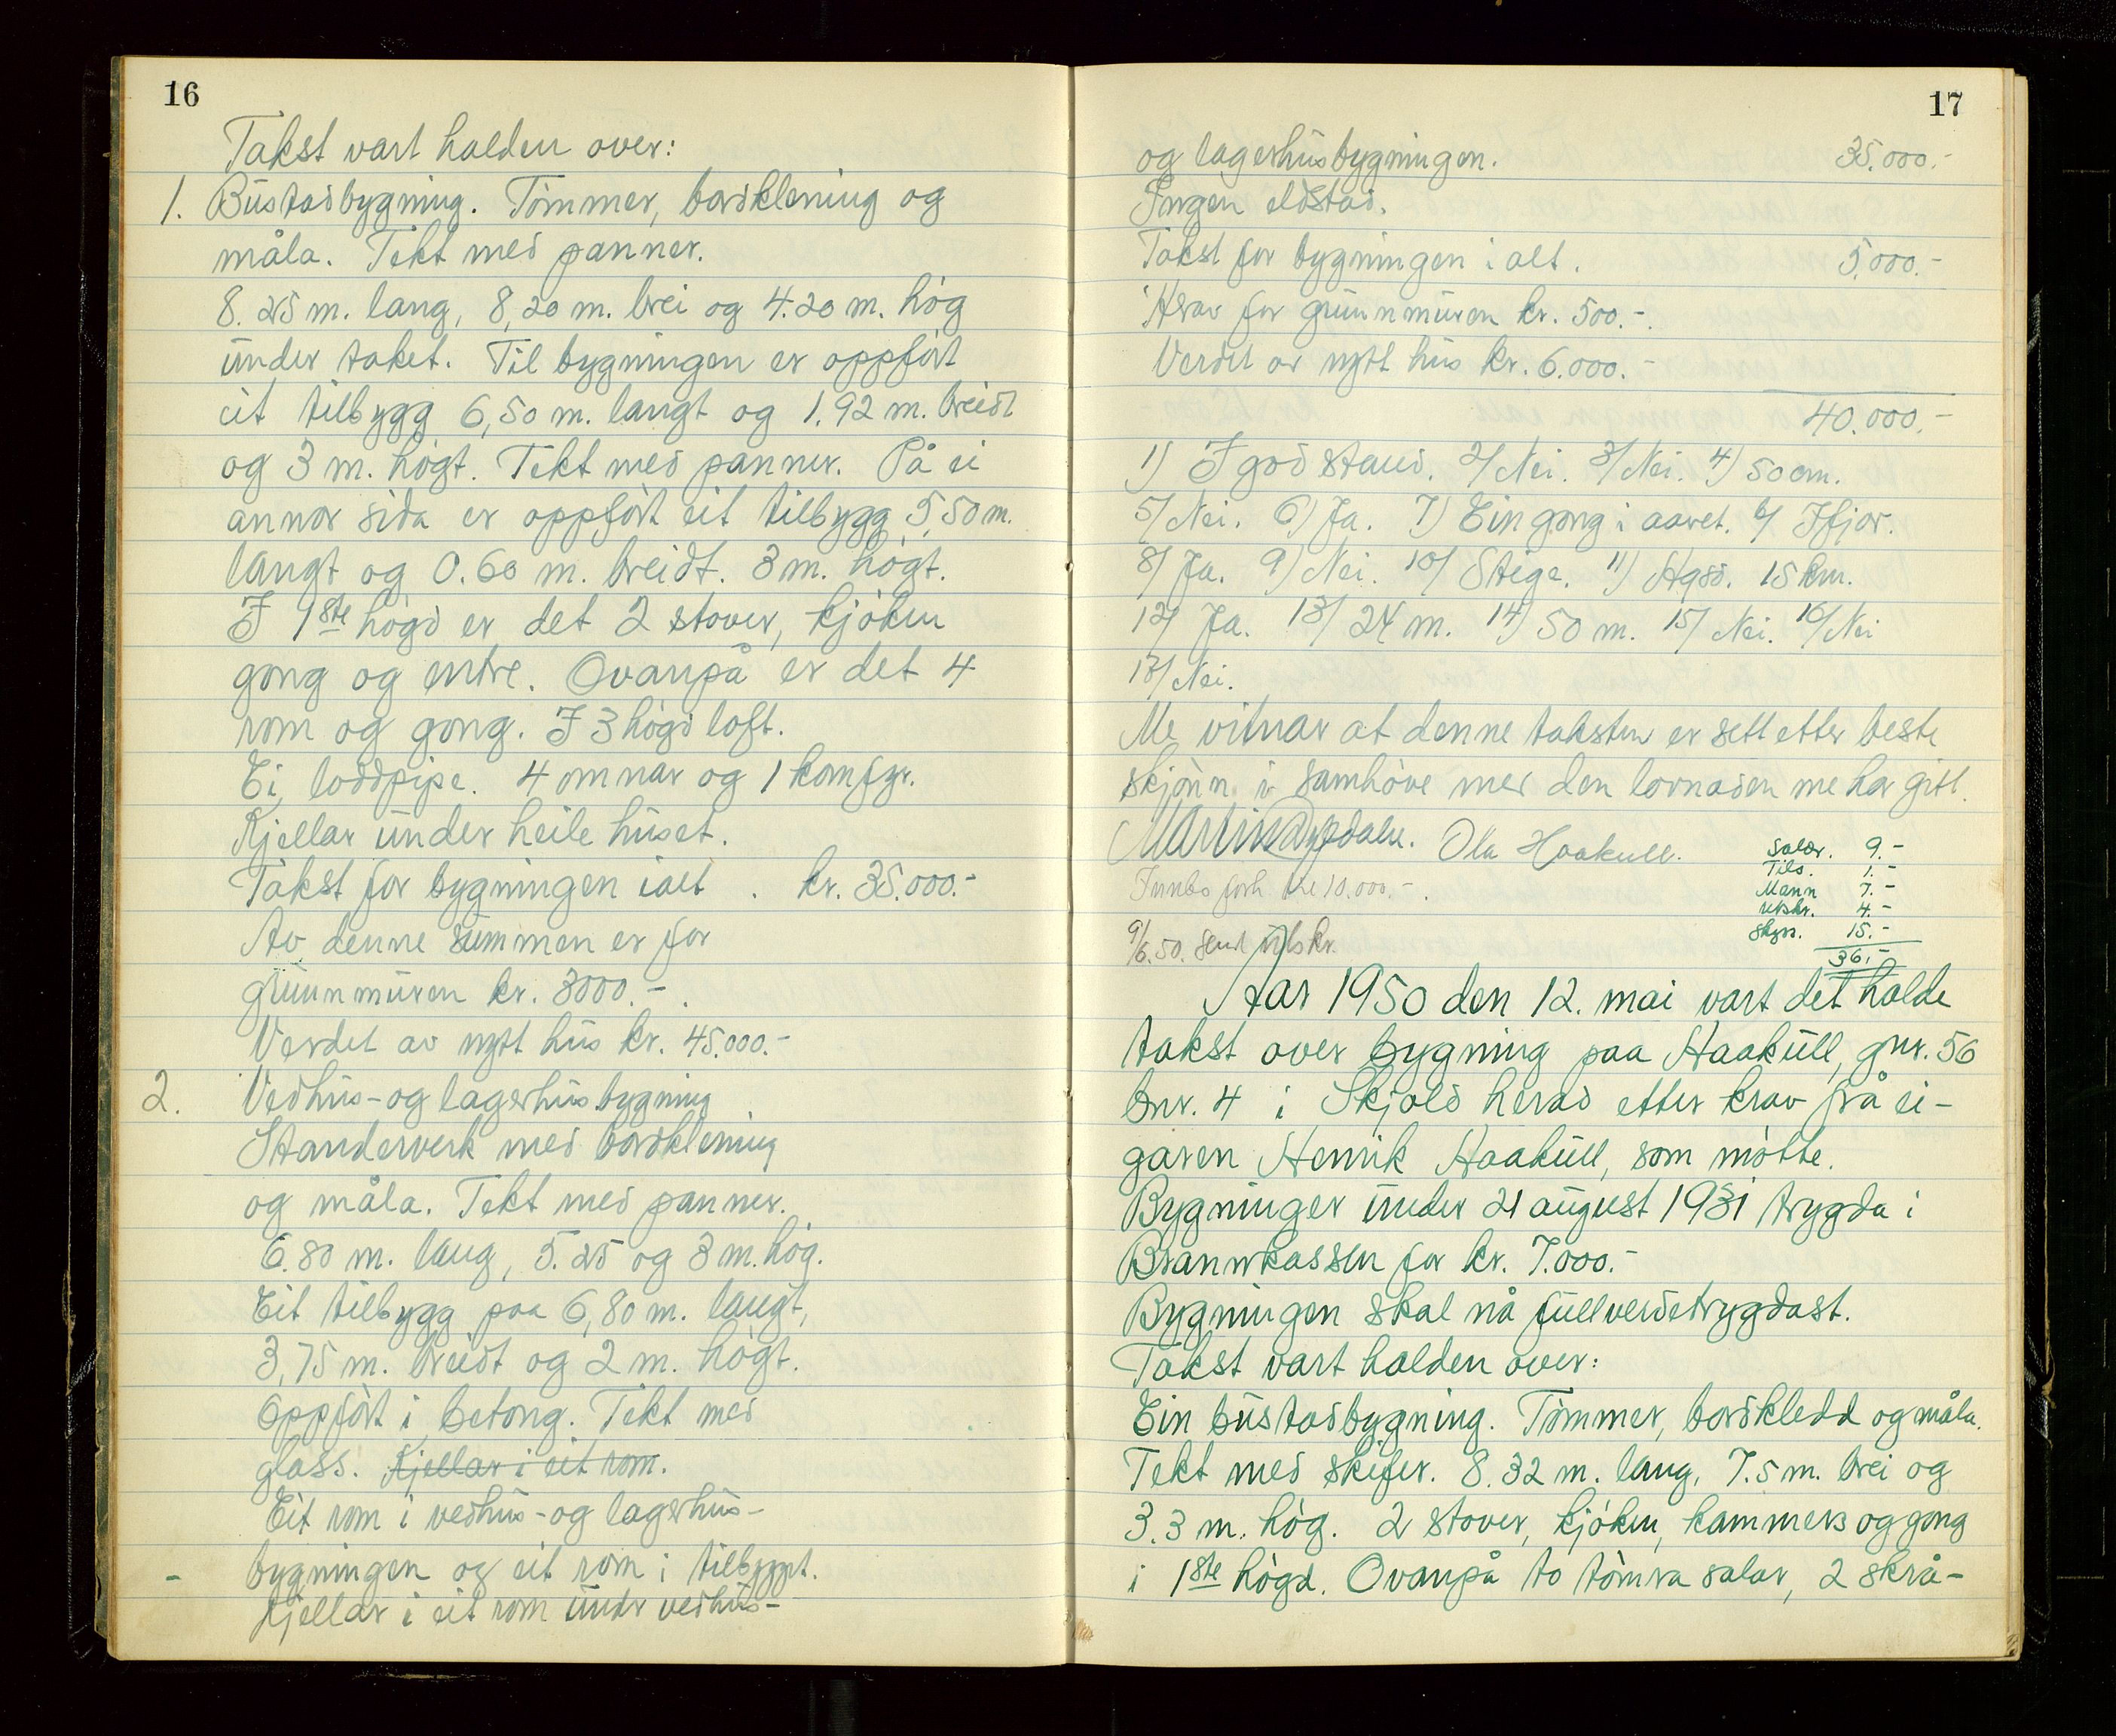 16
Takst vart halden over:
1. Bustadbygning. Tömmer, bordklening og
måla. Tekt med panner.
8.25 m. lang, 8,20 m. brei og 4.20 m. hög
under taket. Til bygningen er oppfört
eit tilbygg 6,50 m. langt og 1.92 m. breidt
og 3 m. högt. Tekt med panner. På ei
annor sida er oppfört eit tilbygg 5,50 m.
langt og 0.60 m. breidt. 3 m. högt.
I 1ste högd er det 2 stover, kjöken
gong og entre. Ovanpå er det 4
rom og gong. I 3 högd loft.
Ei loddpipe. 4 omnar og 1 komfyr.
Kjellar under heile huset.
Takst for bygningen ialt . kr. 35.000.-
Av denne summen er for
grunnmuren kr. 3000.-.
Verdet av nytt hus kr. 45.000.-
2. Vedhus- og lagerhusbygning
Standerverk med bordklening
og måla. Tekt med panner.
6.80 m. lang, 5.25 og 3 m. hög.
Eit tilbygg paa 6,80 m. langt,
3,75 m. breidt og 2 m. högt.
Oppfört i betong. Tekt med
glass. Kjellar i eit rom.
Eit rom i vedhus- og lagerhus-
bygningen og eit rom i tilbygget.
Kjellar i eit rom under vedhus-
17
og lagerhusbygningen. 35.000.-
Ingen eldstad.
Takst for bygningen i alt. 5.000.-
Herav for grunnmuren kr. 500.-.
Verdet av nytt hus kr. 6.000.-
40.000.-
1) I god stand. 2/ Nei. 3/ Nei. 4) 50 cm.
5/ Nei. 6) Ja. 7) Ein gong i aaret. b/ Ifjor.
8/ Ja. 9) Nei. 10/ Stige. 11) Hgsd. 15 km.
12) Ja. 13/ 24 m. 14) 50 m. 15/ Nei. 16/ Nei
17/ Nei.
Me vitnar at denne taksten er sett etter beste
skjönn i samhöve med den lovnaden me har gitt.
Martin Dypdalen. Ola Haakull.
Salær. 9.-
Tils. 1.-
Mann 7.-
Utskr. 4.-
Skyss. 15.-
36.-
Innbo forh. kr 10.000.-.
9/6.50. Send utskr.
Aar 1950 den 12. mai vart det halde
takst over bygning paa Haakull, gnr. 56
bnr. 4 i Skjold herad etter krav frå ei-
garen Henrik Haakull, som mötte.
Bygninger under 21 august 1931 trygda i
Brannkassen for kr. 7.000.-
Bygningen skal nå fullverdetrygdast.
Takst vart halden over:
Ein bustadbygning. Tömmer, bordkledd og måla.
Tekt med skifer. 8.32 m. lang, 7.5 m. brei og
3.3 m. hög. 2 stover, kjöken, kammers og gong
i 1ste högd. Ovanpå to tömra salar, 2 skrå-